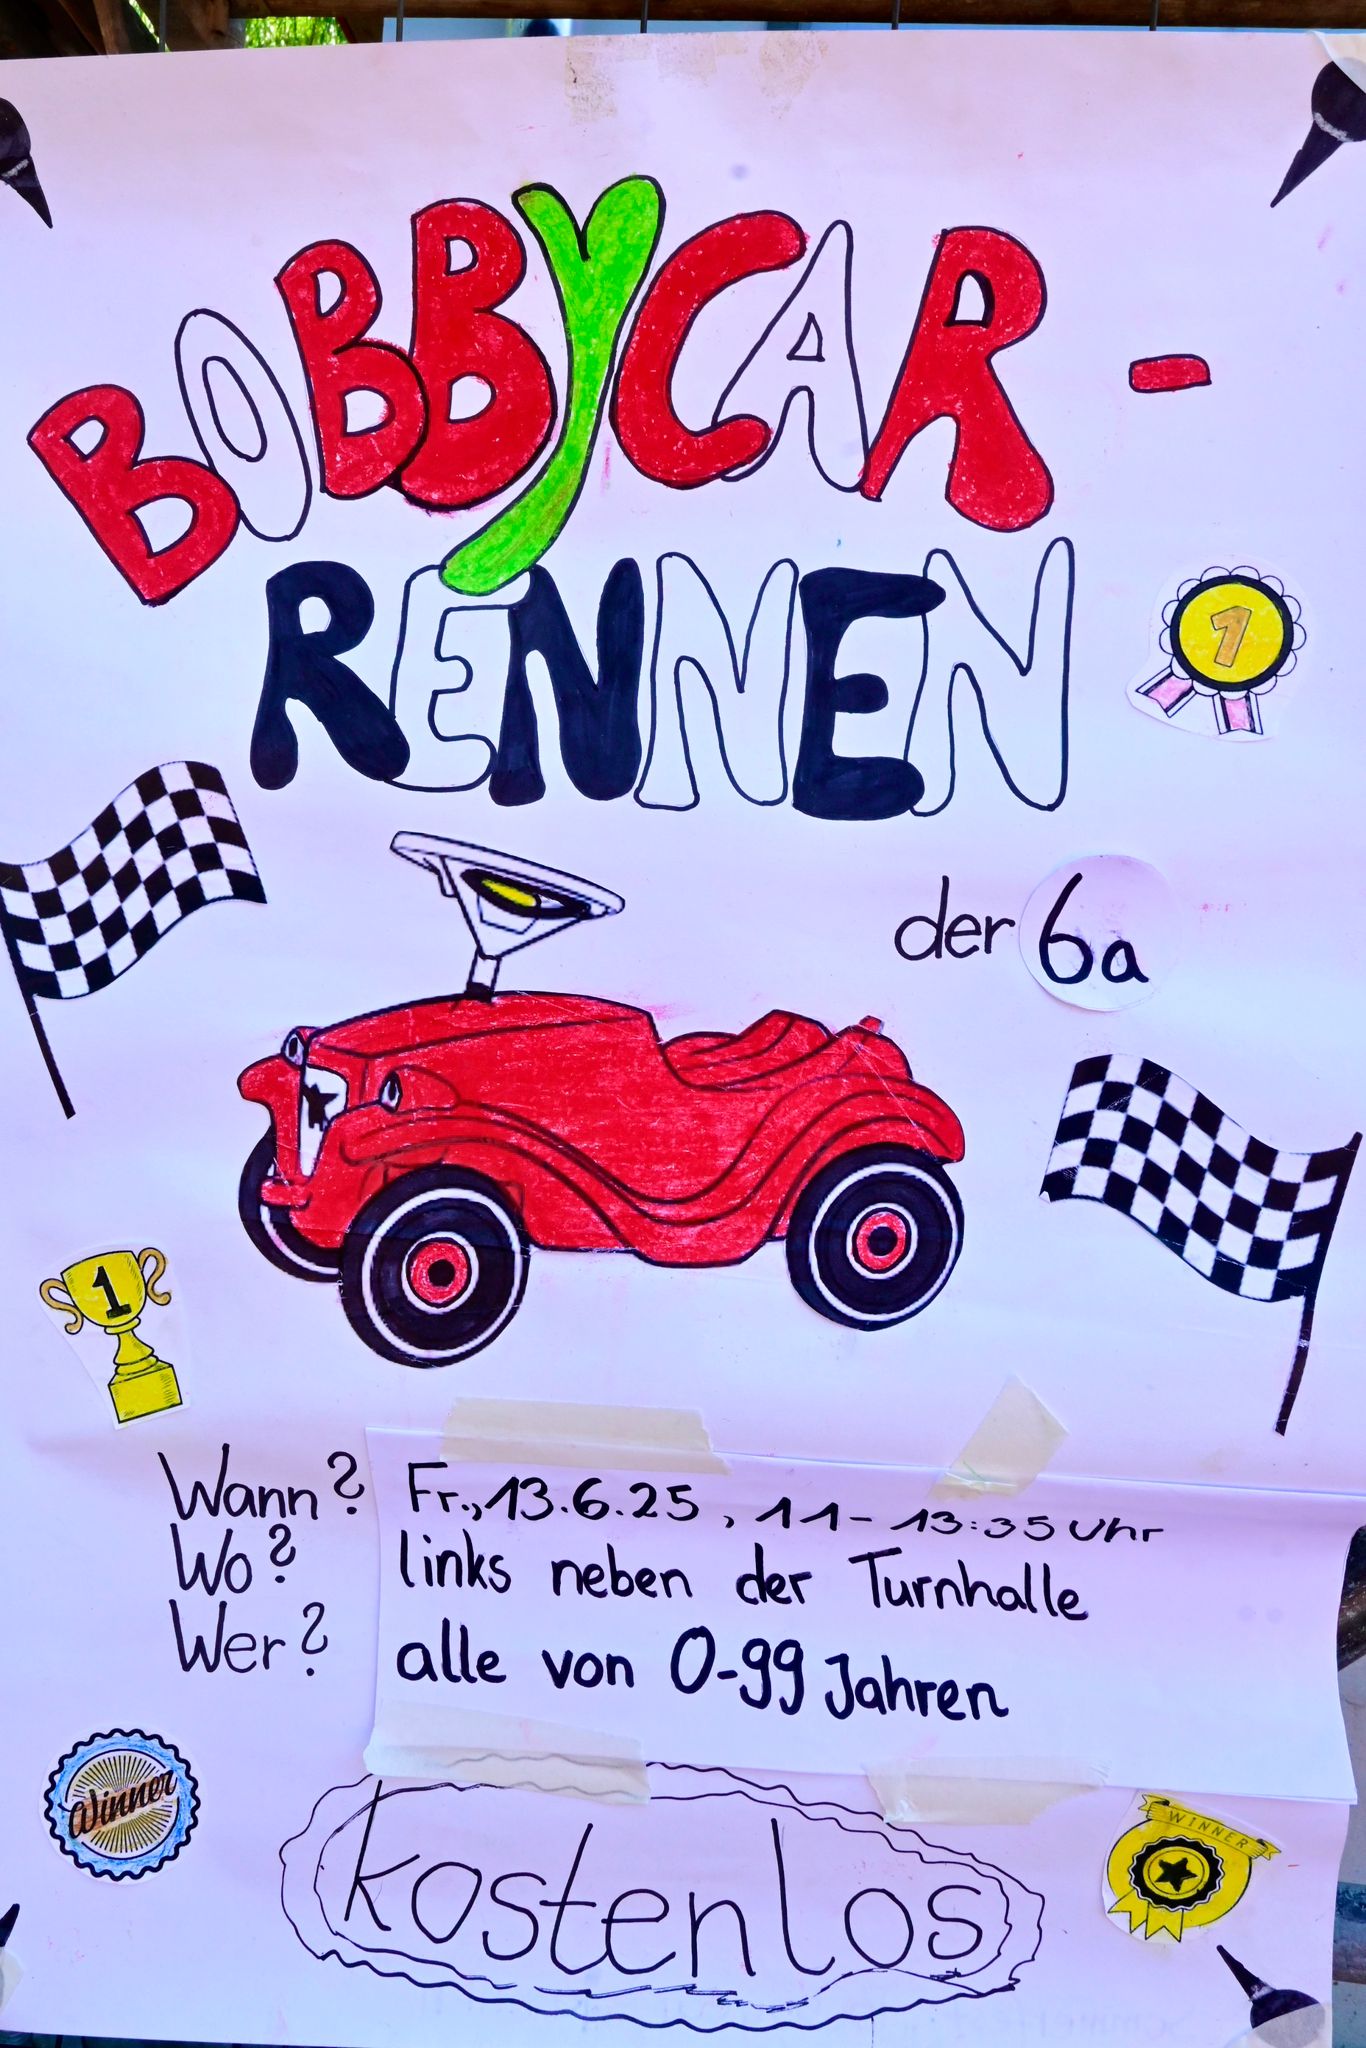 BOBBYCAR-
RENNEN
1
der 6a
1
Wann? Fr., 13.6.25, 11-13:35 Uhr
Wo? links neben der Turnhalle
Wer? alle von 0-99 Jahren
Winner
WINNER
kostenlos